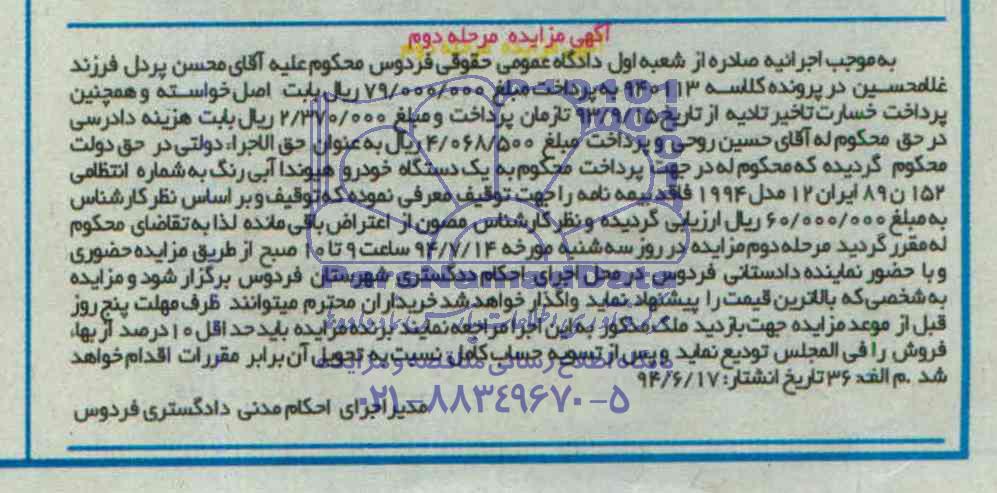 آگهی مزایده مرحله دوم
به موجب اجرائیه صادره از شعبه اول دادگاه عمومی حقوقی فردوس محکوم علیه آقای محسن پردل فرزند
غلامحسین در پرونده کلاسه ۹۴۰۱۱۳ به پرداخت مبلغ ۷۹/۰۰۰/۰۰۰ ریال بابت اصل خواسته و همچنین
پرداخت خسارت تاخیر تادیه از تاریخ ۹۳/۹/۱۵ تا زمان پرداخت و مبلغ ۲/۳۷۰/۰۰۰ ریال بابت هزینه دادرسی
در حق محکوم له آقای حسین روحی و پرداخت مبلغ ۴/۰۶۸/۵۰۰ ریال به عنوان حق الاجراء دولتی در حق دولت
محکوم گردیده که محکوم له در جهت پرداخت محکوم به یک دستگاه خودرو هیوندا آبی رنگ به شماره انتظامی
۱۵۲ ن ۸۹ ایران ۱۲ مدل ۱۹۹۴ فاقد بیمه نامه را جهت توقیف معرفی نموده که توقیف و بر اساس نظر کارشناس
به مبلغ ۶۰/۰۰۰/۰۰۰ ریال ارزیابی گردیده و نظر کارشناس مصون از اعتراض باقی مانده لذا به تقاضای محکوم
له مقرر گردید مرحله دوم مزایده در روز سه شنبه مورخه ۹۴/۷/۱۴ ساعت ۹ تا ۱۰ صبح از طریق مزایده حضوری
و با حضور نماینده دادستانی فردوس در محل اجرای احکام دادگستری شهرستان فردوس برگزار شود و مزایده
به شخصی که بالاترین قیمت را پیشنهاد نماید واگذار خواهد شد خریداران محترم میتوانند ظرف مهلت پنج روز
قبل از موعد مزایده جهت بازدید ملک مذکور به این اجرا مراجعه نمایند برنده مزایده باید حداقل ۱۰ درصد از بهاء
فروش را فی المجلس تودیع نماید و پس از تسویه حساب کامل نسبت به تحویل آن برابر مقررات اقدام خواهد
شد .م الف: ۳۶ تاریخ انتشار: ۹۴/۶/۱۷
مدیر اجرای احکام مدنی دادگستری فردوس
ParsNamadData
پایگاه اطلاع رسانی مناقصه و مزایده
۰۲۱-۸۸۳۴۹۶۷۰-۵